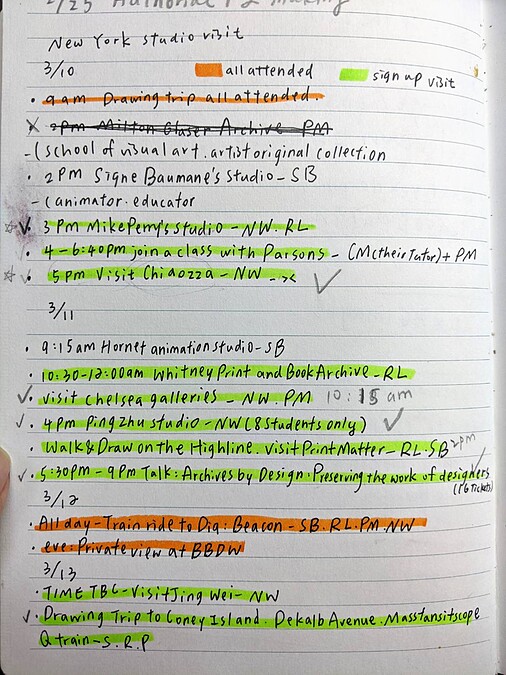 2/23 Authorial P2 Making
New York studio visit
3/10 all attended sign up visit
· 9am Drawing trip all attended.
X 2pm Milton Glaser Archive - PM
- (school of visual art. artist original collection
· 2 PM Signe Baumane's Studio - SB
- (animator. educator
☆ ✓ 3 PM Mike Perry's studio - NW. RL
· 4 - 6:40pm join a class with Parsons - (Mctheir Tutor) + PM
☆ ✓ 5pm Visit Chiaozza - NW ✓
3/11
· 9:15am Hornet animation studio - SB
· 10:30-12:00am Whitney Print and Book Archive - RL
✓ visit Chelsea galleries - NW. PM 10:15 am
✓ · 4pm Ping Zhu studio - NW (8 students only) ✓
· Walk & Draw on the Highline. visit Print Matter - RL. SB 2pm
✓ 5:30pm - 9pm Talk: Archives by Design: Preserving the work of designers
(PG tickets)
3/12
· All day - Train ride to Dia: Beacon - SB. RL. PM. NW
· eve: Private view at BBDW
3/13
· TIME TBC - Visit Jing Wei - NW
✓ · Drawing Trip to Coney Island. Dekalb Avenue. Masstansitscope
Q train - S. R. P